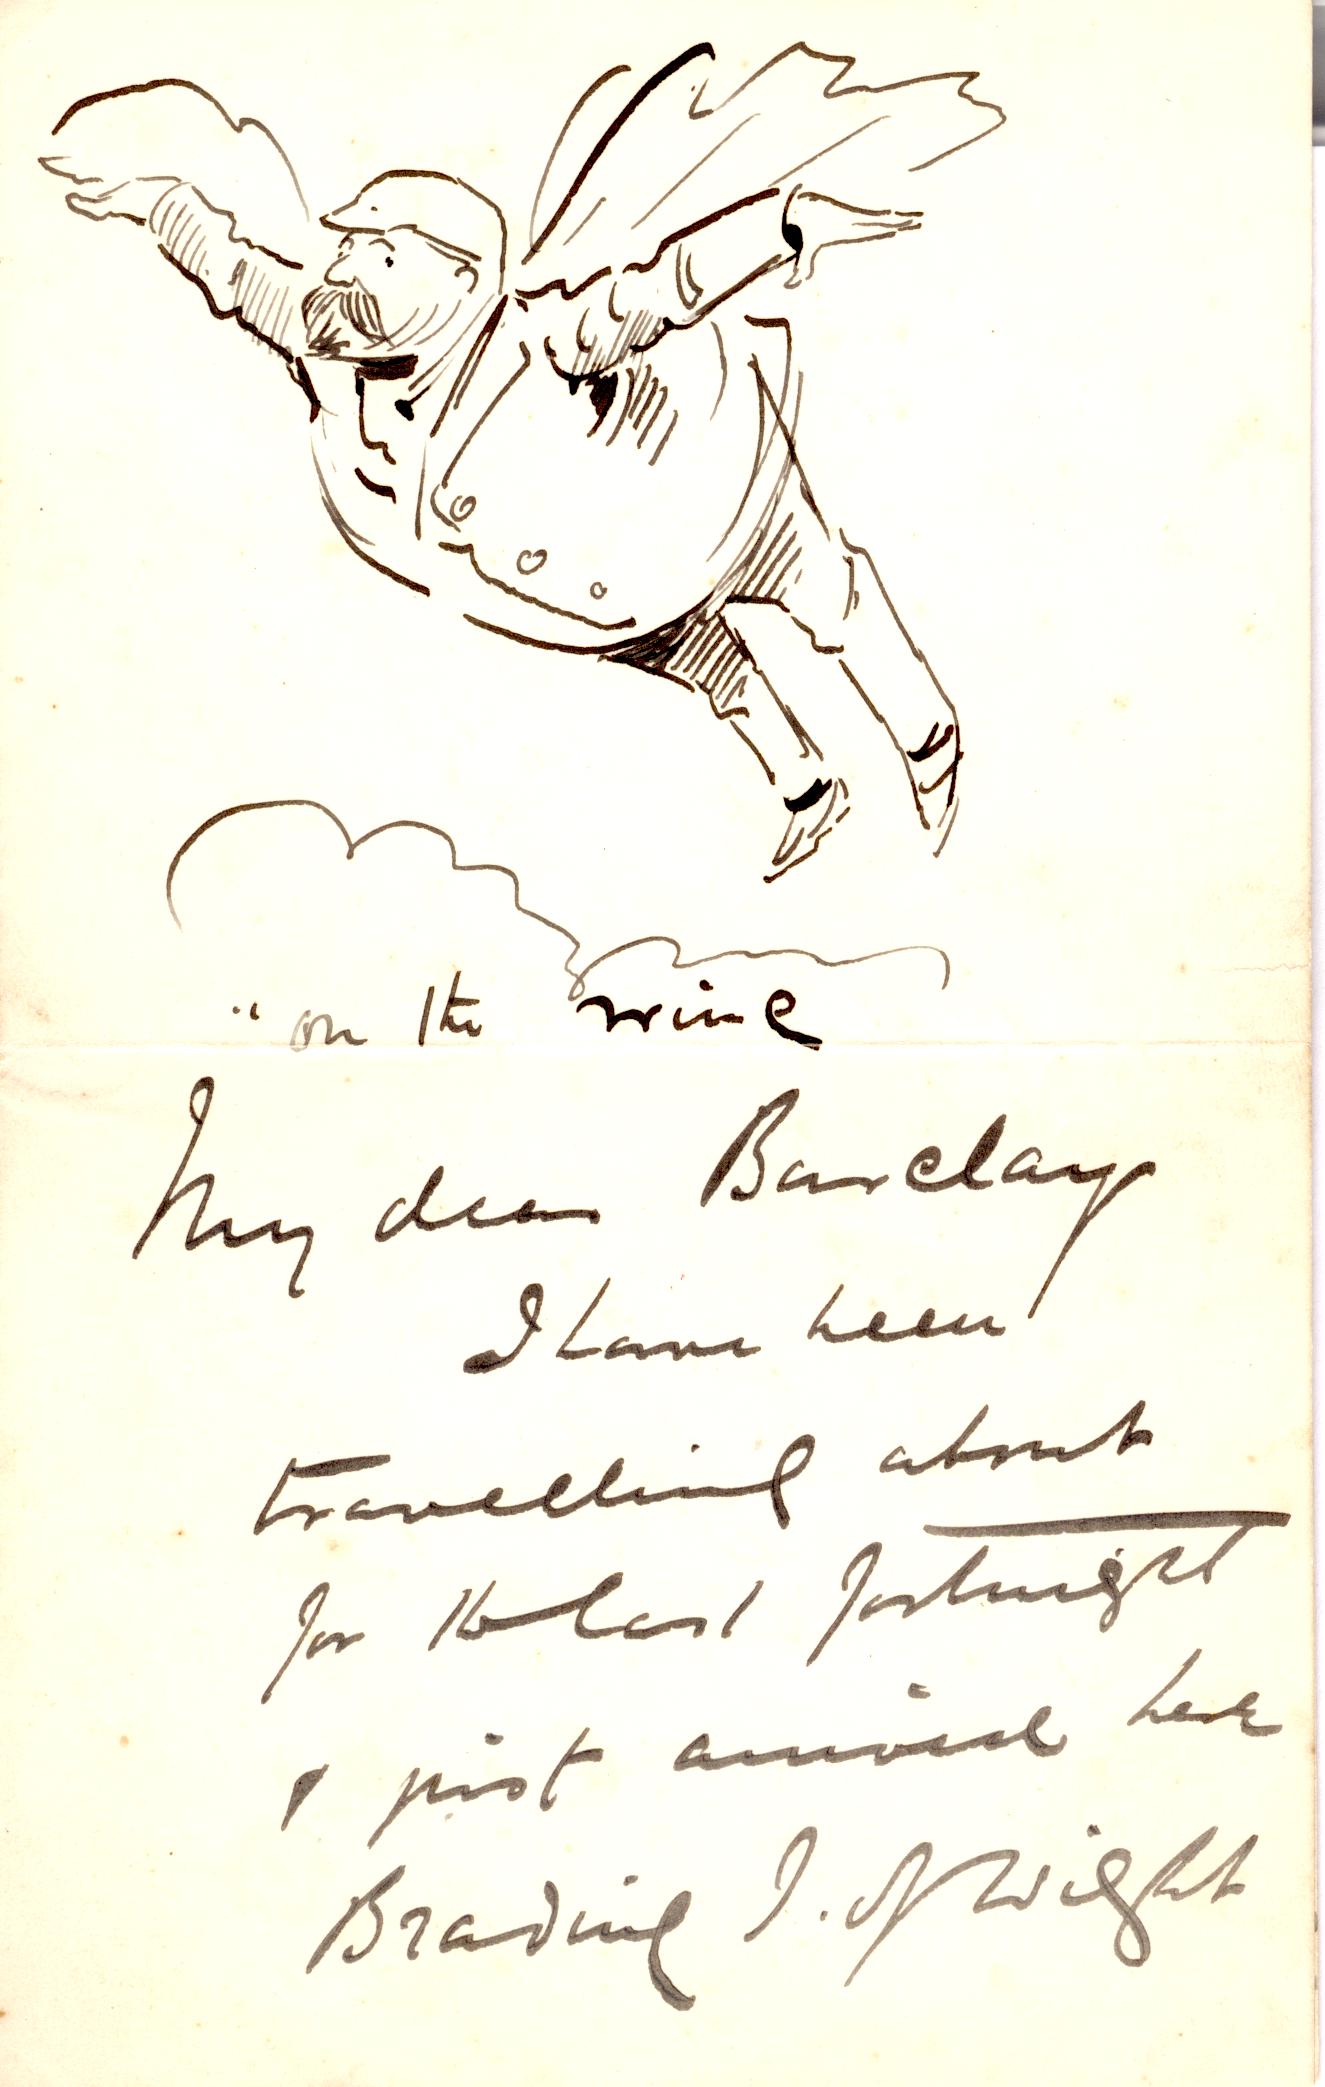 "on the wing
My dear Barclay
I have been
travelling about
for the last fortnight
& just arrived here
Brading I. of Wight